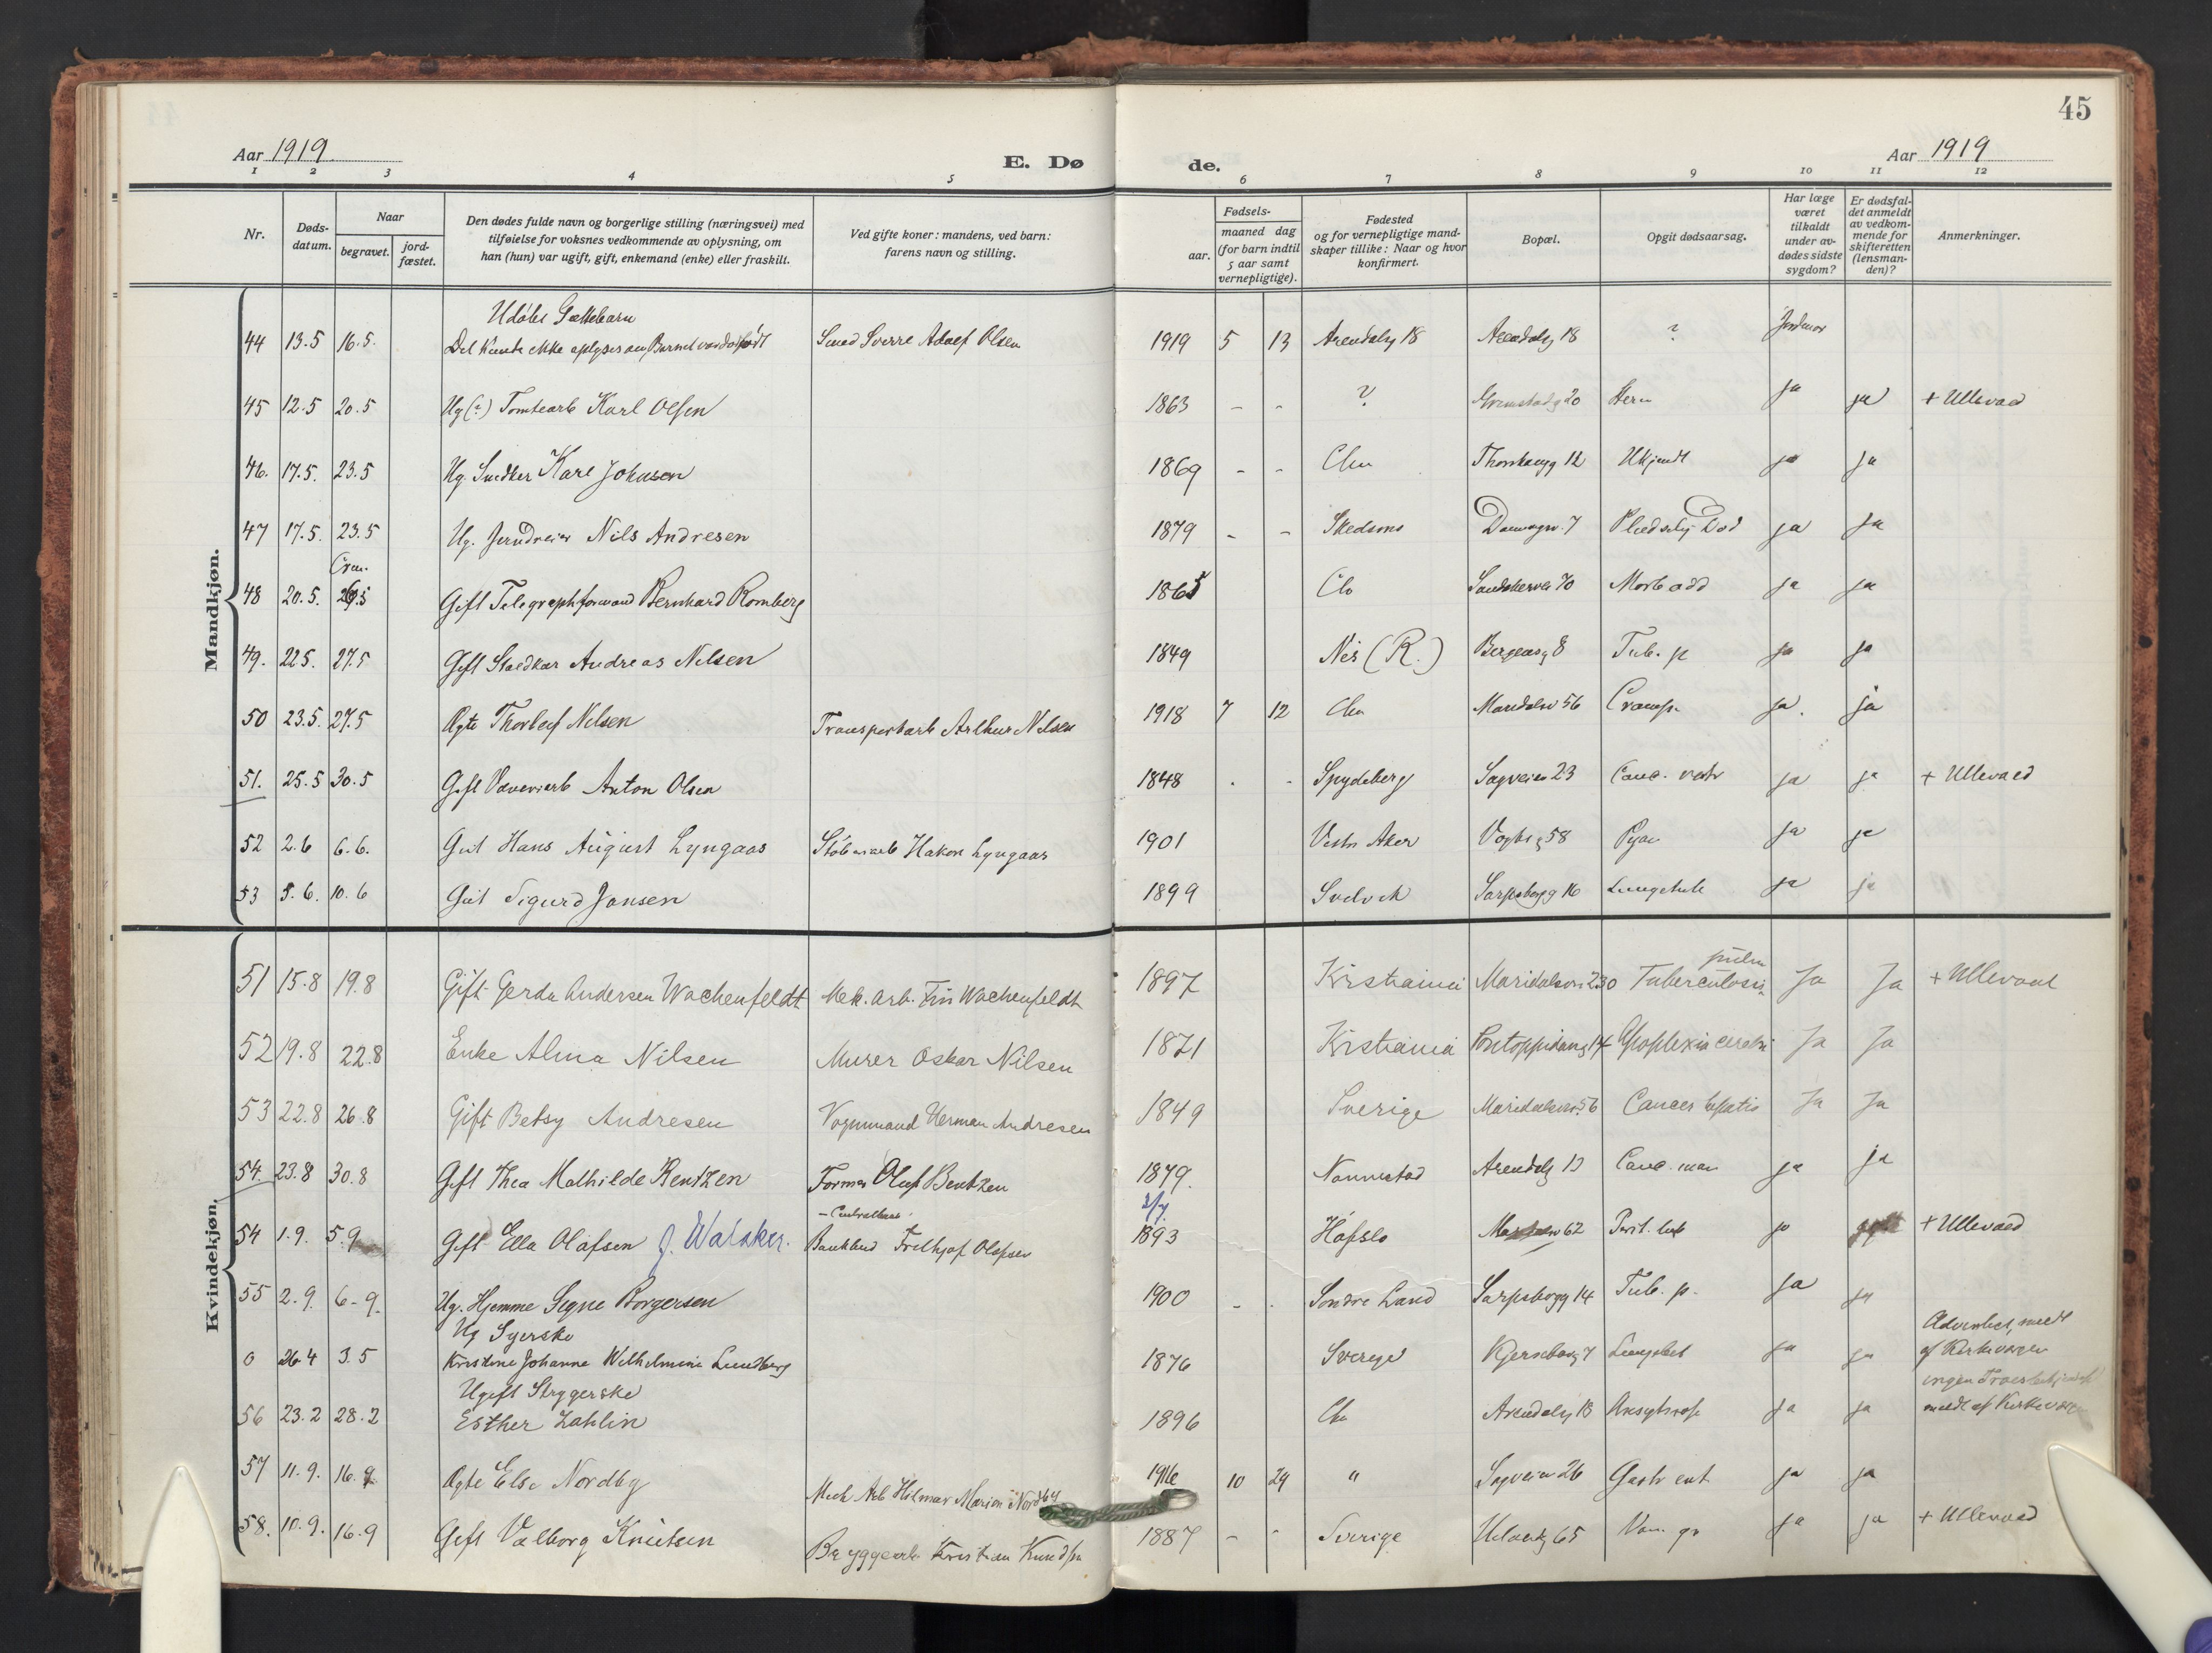 45
Aar 1919
E. Dø
de.
Aar 1919
1 2 3 4 5 6 7 8 9 10 11 12
Nr.
Døds-
datum.
Naar
begravet.
jord-
fæstet.
Den dødes fulde navn og borgerlige stilling (næringsvei) med
tilføielse for voksnes vedkommende av oplysning, om
han (hun) var ugift, gift, enkemand (enke) eller fraskilt.
Ved gifte koner: mandens, ved barn:
farens navn og stilling.
Fødsels-
aar.
maaned dag
(for barn indtil
5 aar samt
vernepligtige).
Fødested
og for vernepligtige mand-
skaper tillike: Naar og hvor
konfirmert.
Bopæl.
Opgit dødsaarsag.
Har læge
været
tilkaldt
under av-
dødes sidste
sygdom?
Er dødsfal-
det anmeldt
av vedkom-
mende for
skifteretten
(lensman-
den)?
Anmerkninger.
Mandkjøn.
Udøbt
44 13.5 16.5. Det kunde ikke oplyses om Barnet var dødfødt Smed Sverre Adolf Olsen 1919 5 13 Arendalsg 18 Arendalsg 18 ? Jordmor
45 12.5 20.5 Ug (?) Tomtearb Karl Olsen 1863 - - ? Grimstadg 20 ja ja + Ullevaal
46. 17.5. 23.5 Ug. Snedker Karl Johnsen 1869 - - Chra 12 Ukjendt ja ja
47 17.5. 23.5 Ug. Jerndreier Nils Andresen 1879 - - Skedsmo 7 Pludselig Død ja ja
Crem.
48 20.5. Gift Telegraphformand Bernhard Romberg 1865 70 ja ja
49. 22.5. 27.5 Gift Andreas Nilsen 1849 Nes (R.) Bergensg 8 Tub. p ja ja
50 23.5. 27.5 Ægte Thorleif Nilsen Transportarb Arthur Nilsen 1918 7 12 Chra Maridalsv 56 ja. ja
51. 25.5 30.5 Gift Anton Olsen 1848 - Spydeberg Sagveien 23 Canc. ventr ja ja + Ullevaal
52 2.6 6.6. Gut Hans August Lyngaas Støberiarb Hakon Lyngaas 1901 Vestre Aker Vogtsg 58 ja ja
53 5.6. 10.6 Gut Sigurd Jansen 1899 Svelvik Sarpsborgg 16 Lungetub ja ja
Kvindekjøn.
pulm
51 15.8 19.8 Gift Gerda Andersen Wachenfeldt Mek. arb. Fin Wachenfeldt 1897 Kristiania Maridalsvei 230 Tuberculosis Ja Ja + Ullevaal
52 19.8 22.8 Enke Alma Nilsen Murer Oskar Nilsen 1871 Kristiania Pontoppidansg 14 Apoplexia cerebri Ja Ja
53 22.8 26.8 Gift Betsy Andresen Vognmand Herman Andresen 1849 Sverige Maridalsvei 56 Cancer hepatis Ja Ja
54. 23.8 30.8 Gift Thea Mathilde Bentzen Former Oluf Bentzen 1879. Nannestad Arendalsg 13 Canc. mam ja ja
2/7
54 1.9. 5.9 Gift Ella Olafsen J. Walaker. Fridtjof Olafsen 1893 Hafslo 62 Perit. tub ja + Ullevaal
55 2.9. 6-9. Ug. Hjemme Signe Borgersen 1900 - - Søndre Land Sarpsborgg 14 Tub. p. ja ja
Ug Syerske Adventist, meldt
0 26.4 3.5 Kristine Johanne Wilhelmine Lundberg 1876 Sverige 7 ja ja af Kirkeverge
Ugift Strygerske
56 23.2 28.2 Esther Zahlin 1896 Chra Arendalsg 18 ja ja meldt af Kirkeverge
57 11.9. 16.9 Ægte Else Nordby Mek Arb Hilmar Marion Nordby 1916 10 29 " Sagveien 26 Gastr ent ja ja
58. 10.9. 16.9 Gift Valborg Knutsen Bryggearb Kristian Knudsen 1887 - - Sverige 65 ja ja + Ullevaal